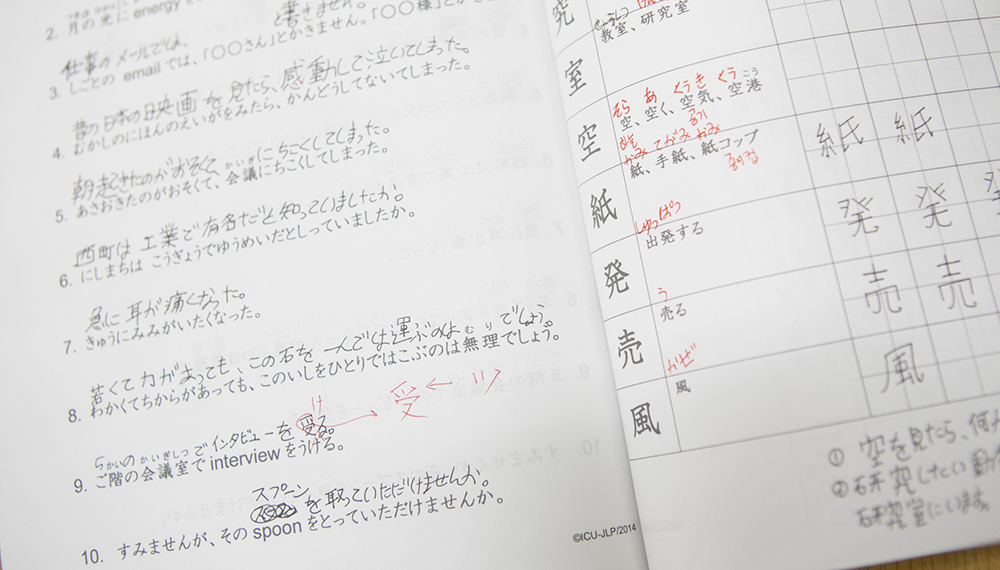 2. 月の光に energy
書きません。
仕事のメールでは、
3. しごとの email では、「〇〇さん」とかきません。「〇〇様」とか
昔の日本の映画を見たら、感動して泣いてしまった。
4. むかしのにほんのえいがをみたら、かんどうしてないてしまった。
かいぎ
朝起きたのがおそくて、にちこくしてしまった。
5. あさおきたのがおそくて、会議にちこくしてしまった。
西町は工業で有名だと知っていましたか。
6. にしまちは こうぎょうでゆうめいだとしっていましたか。
急に耳が痛くなった。
7. きゅうにみみがいたくなった。
むり
若くて力があっても、この石を一人では運ぶのは でしょう。
8. わかくてちからがあっても、このいしをひとりではこぶのは無理でしょう。
け
5かいの かいぎしつ でインタビューを受る。
受 ← ツ
9. ご階の会議室で interview をうける。
スプーン
を取っていただけませんか。
10. すみませんが、その spoon をとっていただけませんか。
©ICU-JLP/2014
究
教室、研究室
室
そら あ くうき くう こう
空、空く、空気、空港
空
かみ てがみ かみ
紙、手紙、紙コップ
紙
紙 紙
しゅっぱつ
出発する
発
発 発 発
う
売る
売
売 売
かぜ
風
風
風
① 空を見たら、何
② 研究したい動
研究室にいます。